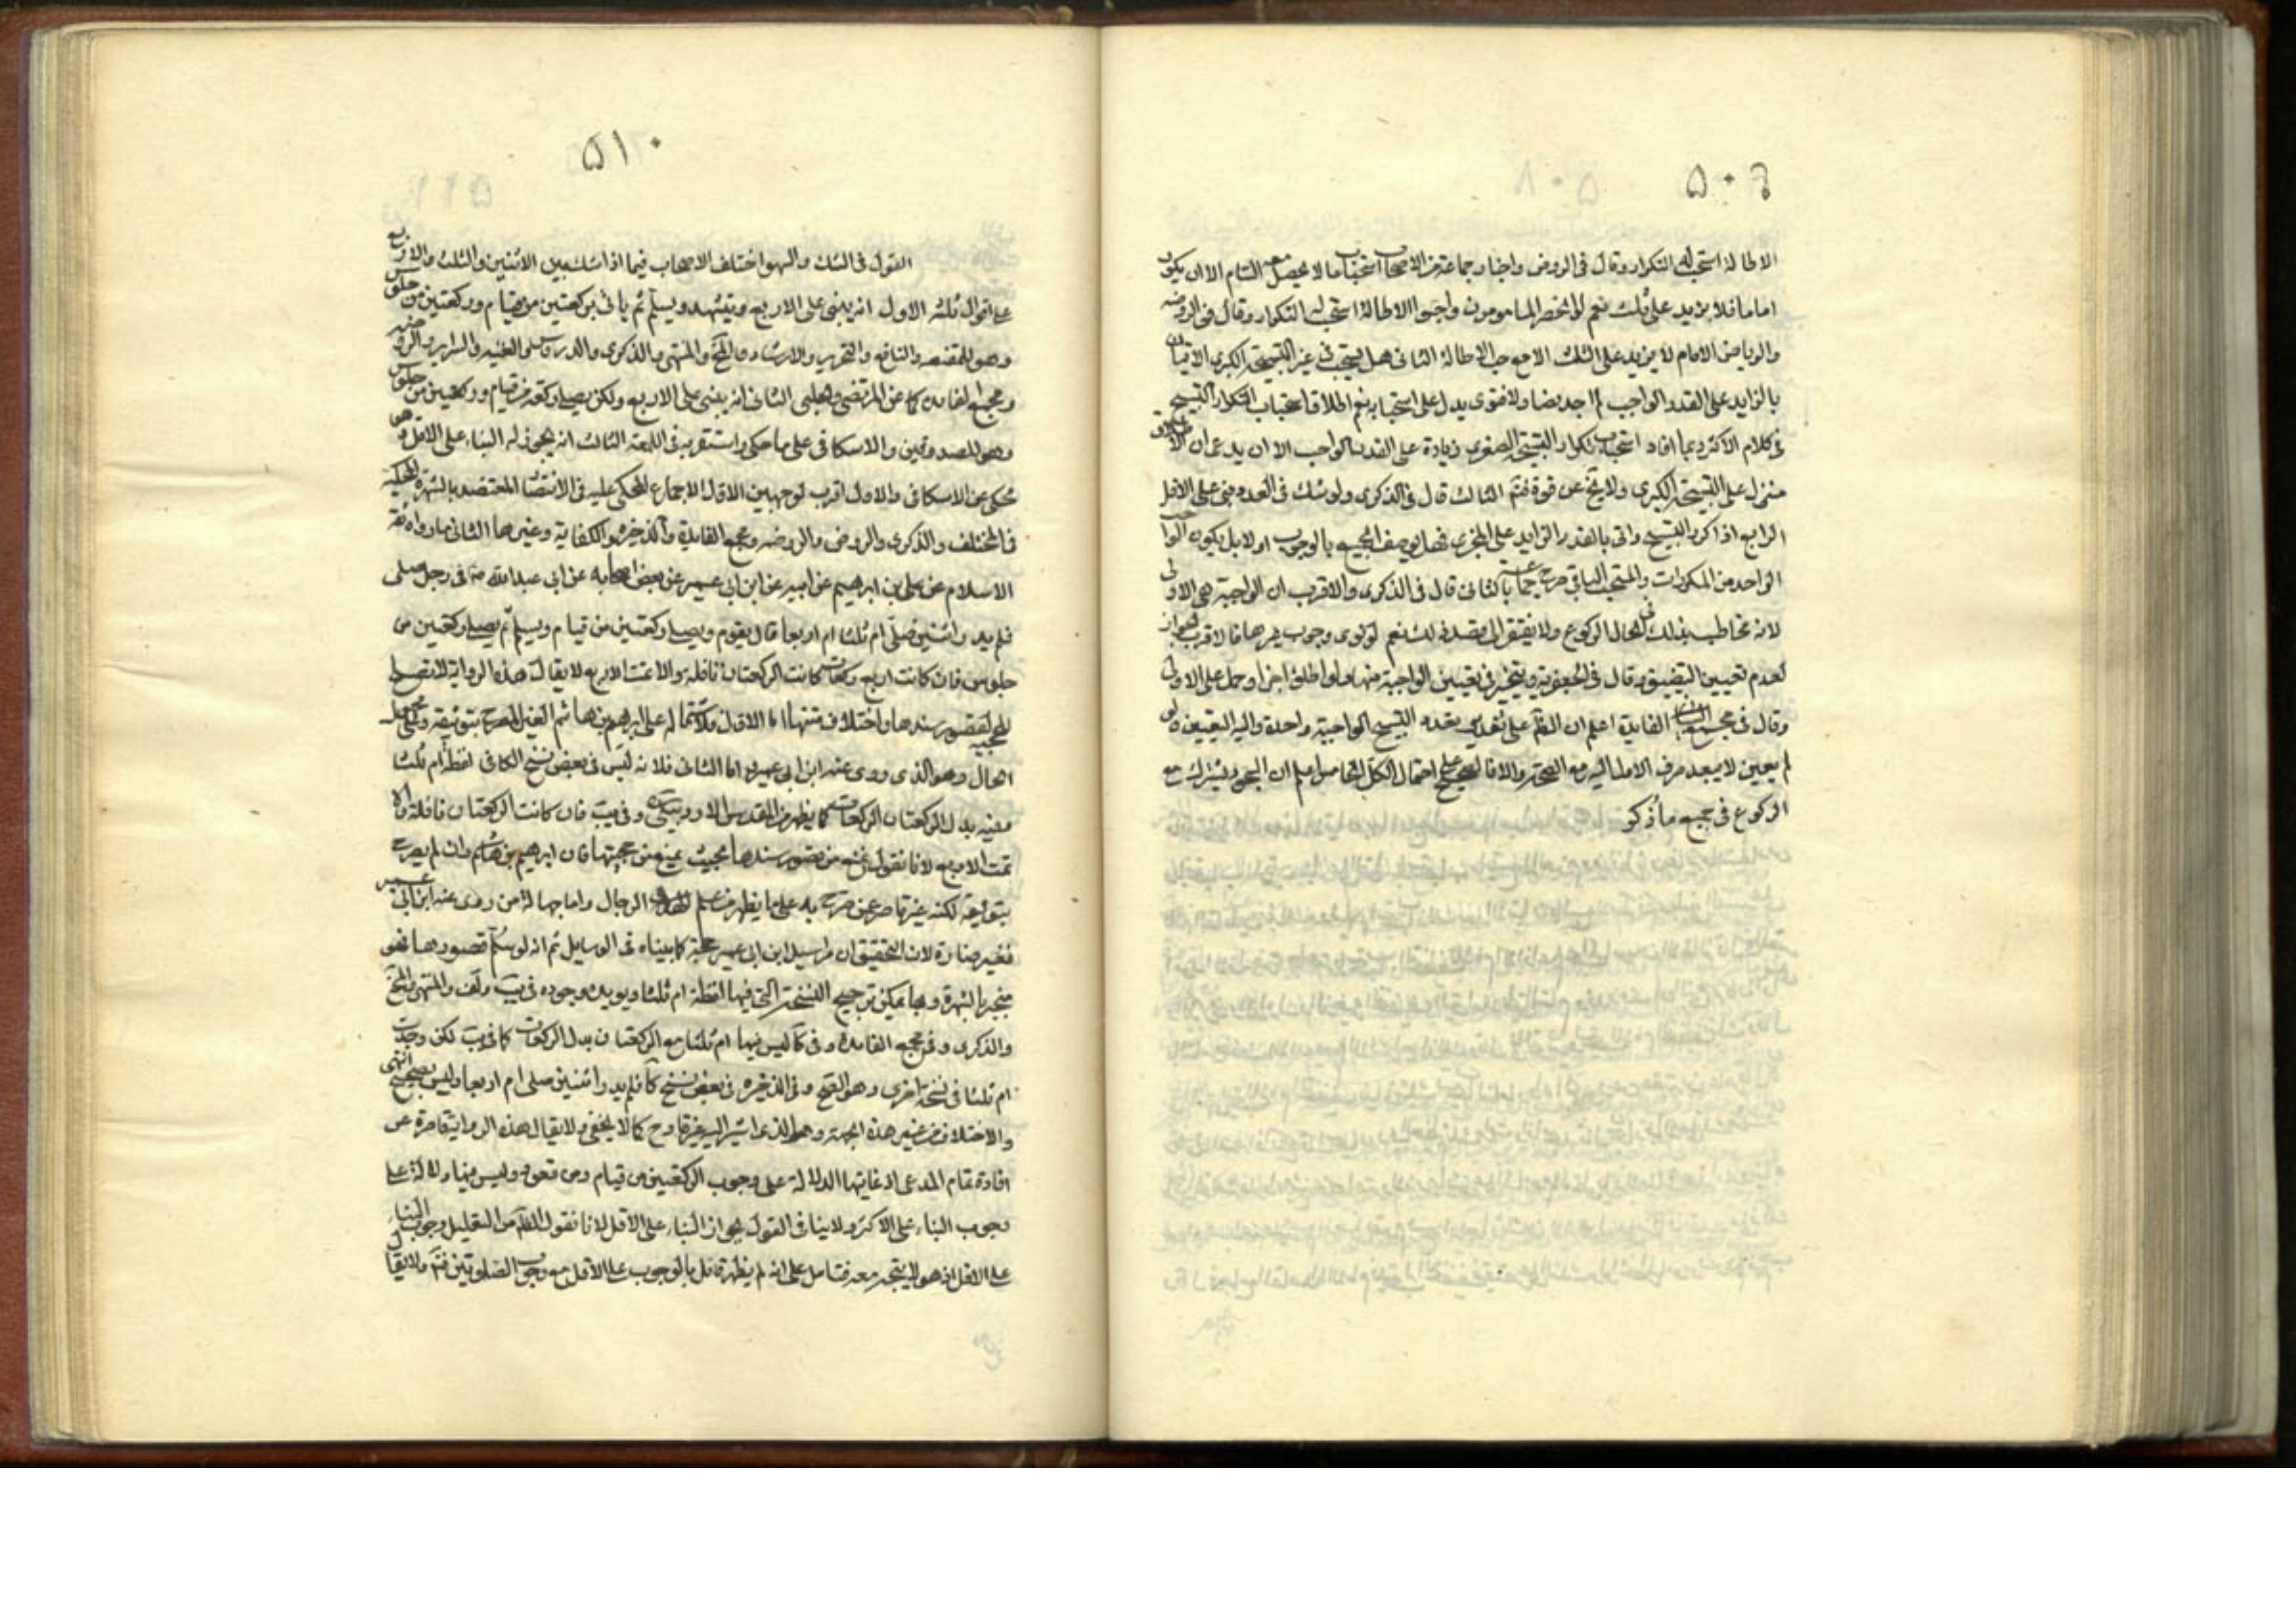 ۵۰۹
الاطالة استحب له التكرار وقال في الروض واختار جماعة من الاصحاب استحباب ما لا يحصل معه السام الا ان يكون
اماما فلا يزيد على ثلث نعم لو انحصر المامومون واحبوا الاطالة استحب له التكرار وقال في الروضة
والرياض الامام لا يزيد على الثلث الا مع حب الاطالة الثاني هل يستحب في غير التسبيحة الكبرى الاتيان
بالزايد على القدر الواجب لم اجد نصا ولا فتوى يدل على استحبابه نعم اطلاق استحباب التكرار التسبيح
في كلام الاكثر ربما افاد استحباب تكرار التسبيحة الصغرى زيادة على القدر الواجب الا ان يدعى ان الاطلاق
منزل على التسبيحة الكبرى ولا يخ عن قوة فتم الثالث قال في الذكرى ولو شك في العدد بنى على الاقل
الرابع اذا كرر التسبيح واتى بالقدر الزايد على المجزي فهل يوصف الجميع بالوجوب او لا بل يكون الواجب
الواحد من المكررات والمستحب الباقي صرح جماعة بالثاني قال في الذكرى والاقرب ان الواجبة هي الاولى
لانه مخاطب بذلك في حال الركوع ولا يفتقر الى قصد ذلك نعم لو نوى وجوب غيرها فالاقرب الجواز
لعدم تعيين التضييق وقال في الجعفرية ويتخير في تعيين الواجبة منها ولو اطلق اجزا وحمل على الاولى
وقال في مجمع الفايدة اعلم ان الظ على تقدير تعدد التسبيح الواجبة واحدة واليه التعيين ولو
لم يعين لا يبعد صرف الاولى اليه مع الصحة والا فالصحيح على احتمال الكل الخامس اعلم ان السجود يشترك مع
الركوع في جميع ما ذكر
۵۱۰
القول في الشك والسهو اختلف الاصحاب فيما اذا شك بين الاثنين والثلث والاربع
على اقوال ثلثة الاول انه يبنى على الاربع ويتشهد ويسلم ثم ياتي بركعتين من قيام وركعتين من جلوس
وهو للمقنعة والنافع والتحرير والارشاد والمنتهى والذكرى والدروس والغنية والسراير والروضة
ومجمع الفايدة كما عن المرتضى والحلبي الثاني انه يبنى على الاربع ولكن يصلى ركعة من قيام وركعتين من جلوس
وهو للصدوقين والاسكافي على ما حكى واستقر به في اللمعة الثالث انه يجوز له البناء على الاقل وهو
محكى عن الاسكافي والاول اقرب لوجهين الاول الاجماع المحكى عليه في الانتصار المعتضد بالشهرة المحكية
في المختلف والذكرى والروض والروضة ومجمع الفايدة والذخيرة والكفاية وغيرها الثاني ما رواه ثقة
الاسلام عن علي بن ابرهيم عن ابيه عن ابن ابي عمير عن بعض اصحابه عن ابي عبد الله ع في رجل صلى
فلم يدر اثنتين صلى ام ثلثا ام اربعا قال يقوم ويصلى ركعتين من قيام ويسلم ثم يصلى ركعتين من
جلوس فان كانت اربع ركعات كانت الركعتان نافلة والا تمت الاربع لا يقال هذه الرواية لا تصلح
للحجية لقصور سندها واختلاف متنها اما الاول فلاشتماله على ابرهيم بن هاشم الغير المصرح بتوثيقه وعلى مجهول
الحال وهو الذي روى عنه ابن ابي عمير واما الثاني فلانه ليس في بعض نسخ الكافي لفظة ام ثلثا
وفيه بدل الركعتان الركعات كما يظهر من المقدس الاردبيلي وفي يب فان كانت الركعتان نافلة والا
تمت الاربع لانا نقول نمنع من قصور سندها بحيث يمنع من حجيتها فان ابرهيم بن هاشم وان لم يصرح
بتوثيقه لكنه غير قاصر عمن صرح به على ما يظهر من علم الرجال واما جهالة من روى عنه ابن ابي عمير
فغير ضارة لان التحقيق ان مراسيل ابن ابي عمير حجة كما بيناه في الوسايل ثم انه لو سلم قصورها فهو
منجبر بالشهرة وبها يمكن ترجيح النسخة التي فيها لفظة ام ثلثا ويؤيده وجوده في يب ولف والمنتهى
والذكرى وفي مجمع الفايدة وفي كا ليس فيها ام ثلثا مع الركعتان بدل الركعات كما في يب لكن وجدت
ام ثلثا في نسخة اخرى وهو الصحيح وفي الذخيرة في بعض نسخ كا فلم يدر اثنتين صلى ام اربعا وليس بصحيح انتهى
والاختلاف من غير هذه الجهة وهو الذي اشير اليه غير قادح كما لا يخفى ولا يقال هذه الرواية قاصرة عن
افادة تمام المدعى اذ غايتها الدلالة على وجوب الركعتين من قيام ومن قعود وليس فيها دلالة على
وجوب البناء على الاكثر ولا ينافي القول بجواز البناء على الاقل لانا نقول الظ من التعليل وجوب البناء
على الاقل اذ هو لا يتجه معه فتامل على انه لم يظهر قائل بالوجوب على الاقل مع وجوب الصلوتين فتم ولا يقال